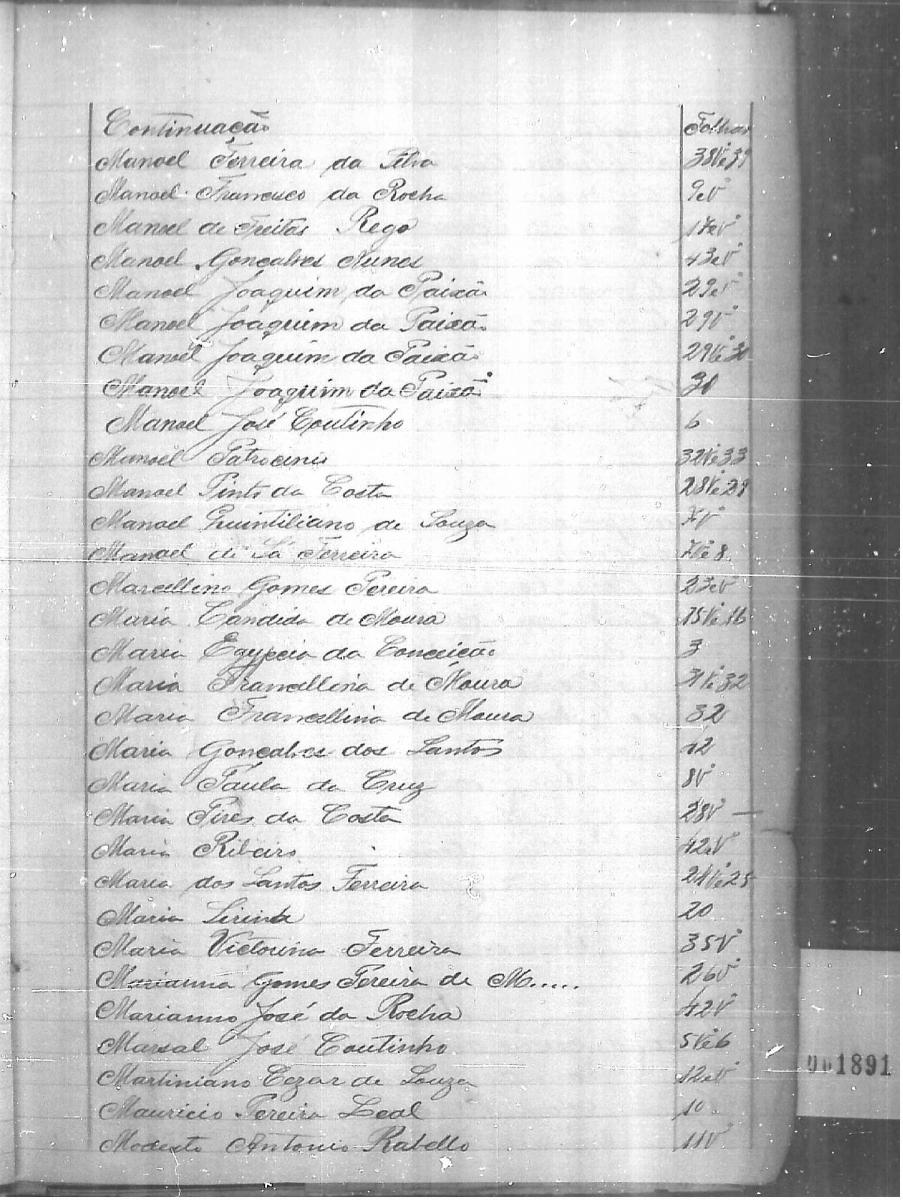 Continuação Folhas
Manoel Ferreira da Silva 38Ve39
Manoel Francisco da Rocha 9eV
Manoel de Freitas Rego 17eV
Manoel Gonçalves Nunes 43eV
Manoel Joaquim da Paixão 29eV
Manoel Joaquim da Paixão 29V
Manoel Joaquim da Paixão 29Ve30
Manoel Joaquim da Paixão 30
Manoel José Coutinho 6
Manoel Patrocinio 32Ve33
Manoel Pinto da Costa 28Ve29
Manoel Quintiliano de Souza 7V
Manoel de Sá Ferreira 7Ve8
Marcellino Gomes Pereira 23eV
Maria Candida de Moura 15Ve16
Maria Egypcia da Conceição 3
Maria Francellina de Moura 31Ve32
Maria Francellina de Moura 32
Maria Gonçalves dos Santos 12
Maria Paula da Cruz 8V
Maria Pires da Costa 28V —
Maria Ribeiro 42eV
Maria dos Santos Ferreira 24Ve25
Maria 20
Maria Victorina Ferreira 35V
Marianna Gomes Pereira de M..... 26V
Marianno José da Rocha 42V
Marsal José Coutinho 5Ve6
Martiniano Cezar de Souza 12eV
Mauricio Pereira Leal 10
Modesto Antonio Rabello 11V
1891